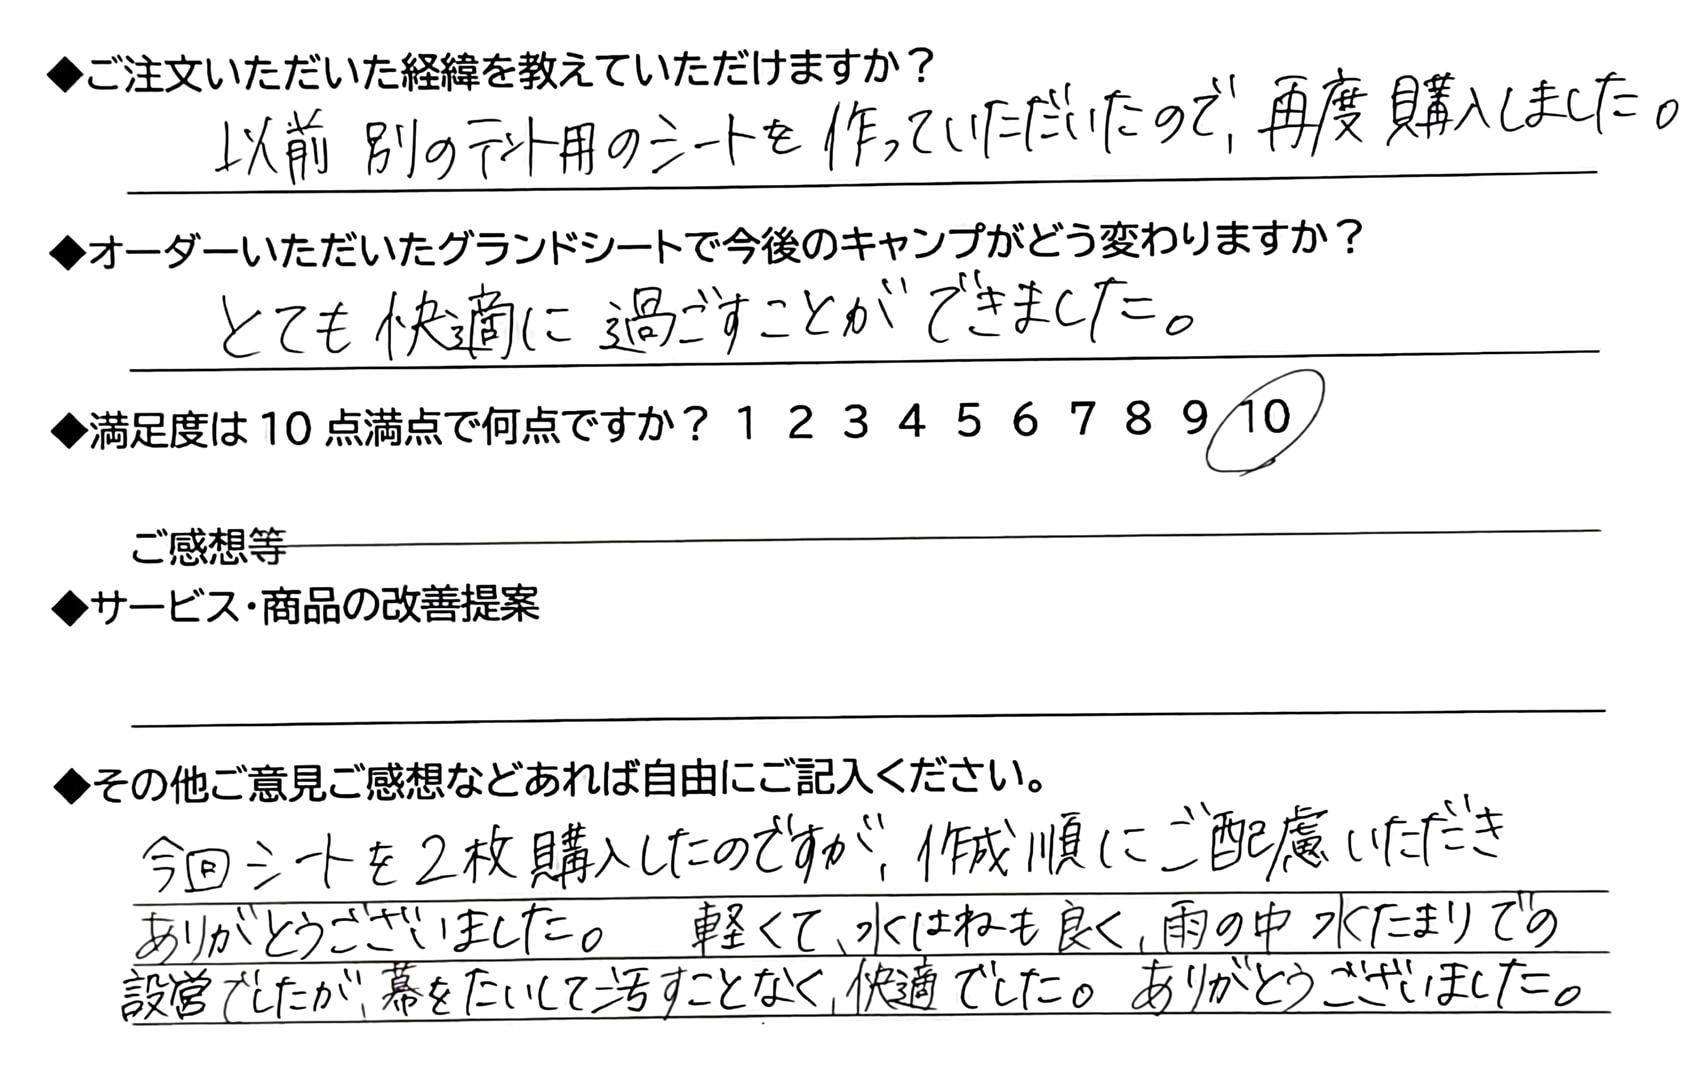 ◆ご注文いただいた経緯を教えていただけますか？
以前 別のテント用のシートを作っていただいたので、再度購入しました。
◆オーダーいただいたグランドシートで今後のキャンプがどう変わりますか？
とても快適に過ごすことができました。
◆満足度は 10 点満点で何点ですか？ 1 2 3 4 5 6 7 8 9 10
ご感想等
◆サービス・商品の改善提案
◆その他ご意見ご感想などあれば自由にご記入ください。
今回シートを2枚購入したのですが、作成順にご配慮いただき
ありがとうございました。 軽くて、水はねも良く、雨の中 水たまりでの
設営でしたが、幕をたいして汚すことなく、快適でした。ありがとうございました。